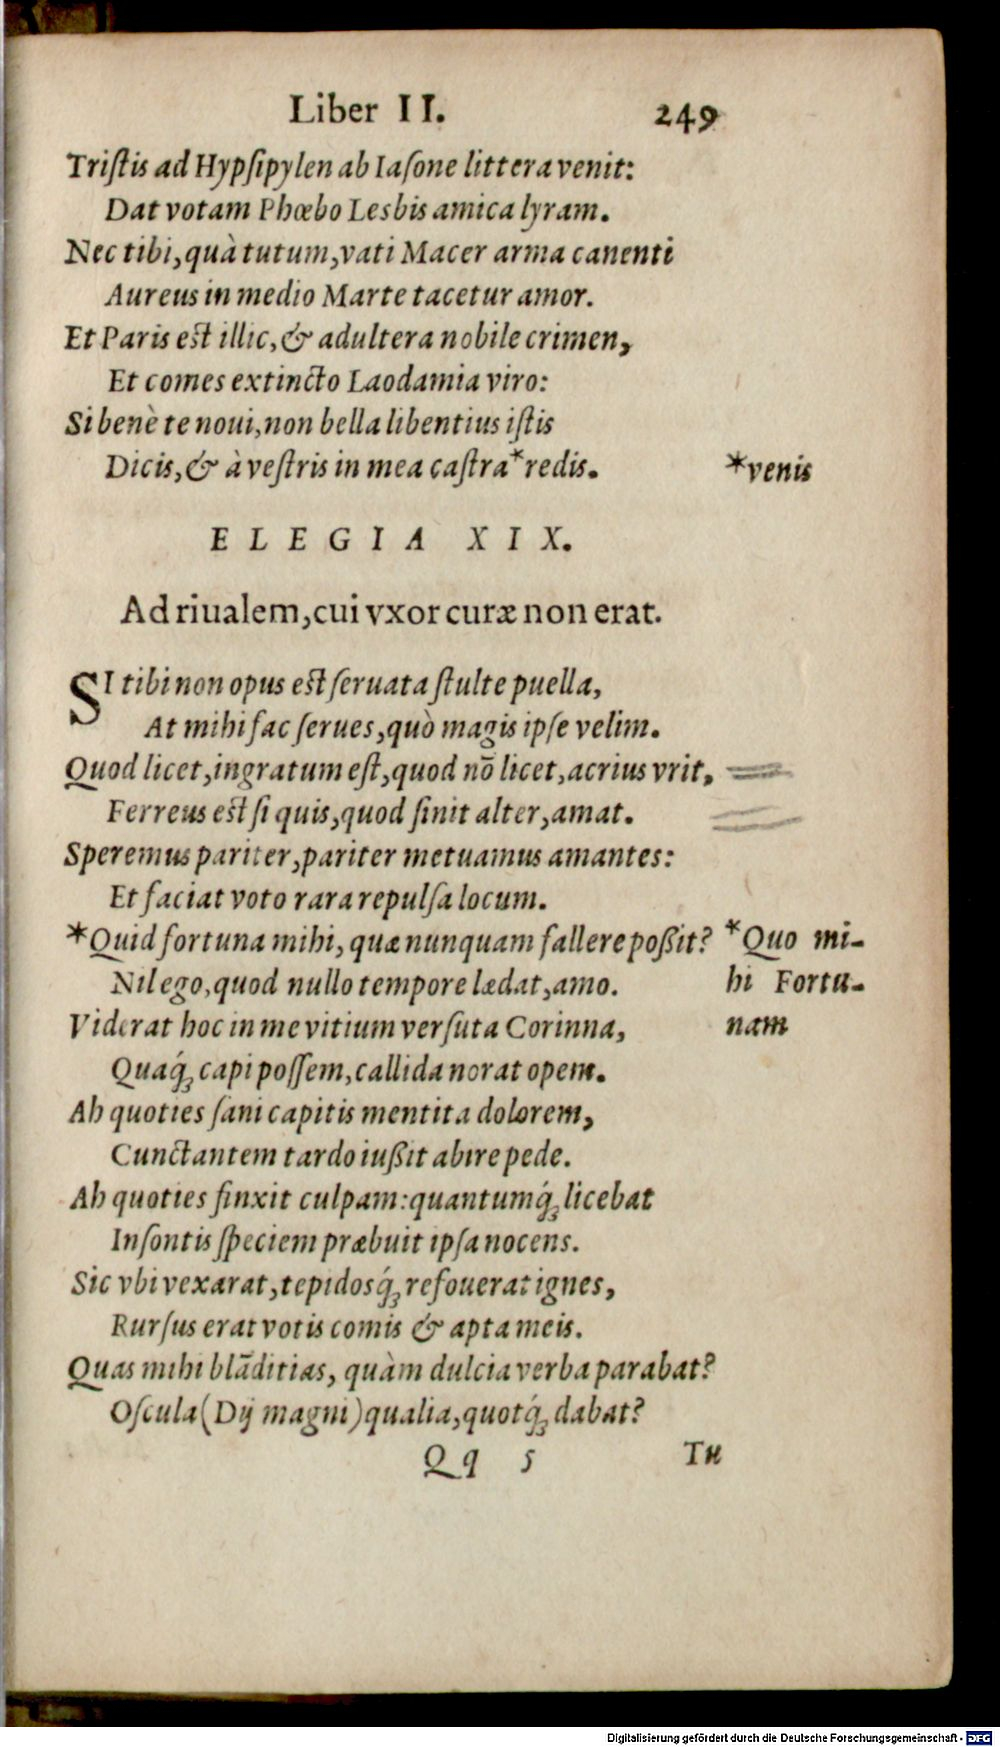 Liber II. 249
Tristis ad Hypsipylen ab Iasone littera venit:
Dat votam Phœbo Lesbis amica lyram.
Nec tibi, quà tutum, vati Macer arma canenti
Aureus in medio Marte tacetur amor.
Et Paris est illic, & adultera nobile crimen,
Et comes extincto Laodamia viro:
Si benè te noui, non bella libentius istis
Dicis, & à vestris in mea castra *redis. *venis
ELEGIA XIX.
Ad riualem, cui vxor curæ non erat.
SI tibi non opus est seruata stulte puella,
At mihi fac serues, quò magis ipse velim.
Quod licet, ingratum est, quod nō licet, acrius vrit,
Ferreus est si quis, quod sinit alter, amat.
Speremus pariter, pariter metuamus amantes:
Et faciat voto rara repulsa locum.
*Quid fortuna mihi, quæ nunquam fallere poßit? *Quo mi-
Nil ego, quod nullo tempore lædat, amo. hi Fortu-
Viderat hoc in me vitium versuta Corinna, nam
Quaq́; capi possem, callida norat opem.
Ah quoties sani capitis mentita dolorem,
Cunctantem tardo iußit abire pede.
Ah quoties finxit culpam: quantumq́; licebat
Insontis speciem præbuit ipsa nocens.
Sic vbi vexarat, tepidosq́; refouerat ignes,
Rursus erat votis comis & apta meis.
Quas mihi blāditias, quàm dulcia verba parabat?
Oscula (Dij magni) qualia, quotq́; dabat?
Qq 5 Tu
Digitalisierung gefördert durch die Deutsche Forschungsgemeinschaft - DFG